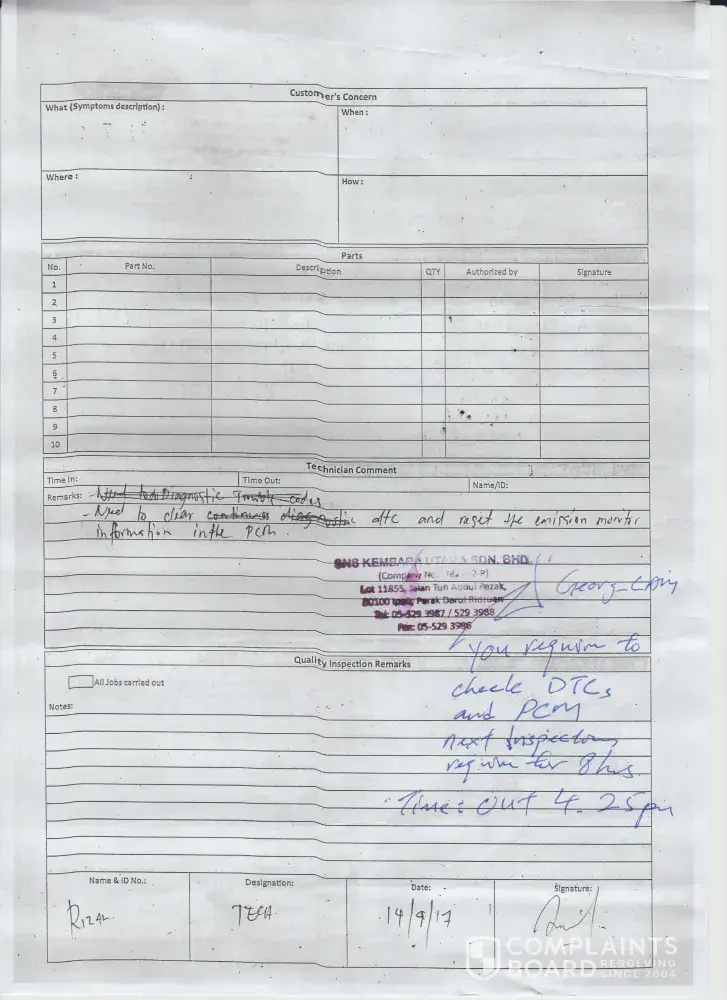 Customer's Concern
What (Symptoms description) :
When :
Where :
How :
Parts
No. Part No. Description QTY Authorized by Signature
1
2
3
4
5
6
7
8
9
10
Technician Comment
Time In: Time Out: Name/ID:
Remarks: - Need to do Diagnostic Trouble codes
- Need to clear continuous diagnostic dtc and reset the emission monitor
information in the PCM.
SNS KEMBARA UTAMA SDN. BHD.
(Company No.
Lot 11855, Jalan Tun Abdul Razak,
30100 Ipoh, Perak Darul Ridzuan
Tel: 05-529 3987 / 529 3988
Fax: 05-529 3986
You require to
check DTCs
and PCM
next Inspection
require for 8 hrs.
Time: out 4.25pm
Quality Inspection Remarks
All Jobs carried out
Notes:
Name & ID No.: Designation: Date: Signature:
RIZAL TECH 14/9/17
COMPLAINTS
BOARD RESOLVING
SINCE 2004